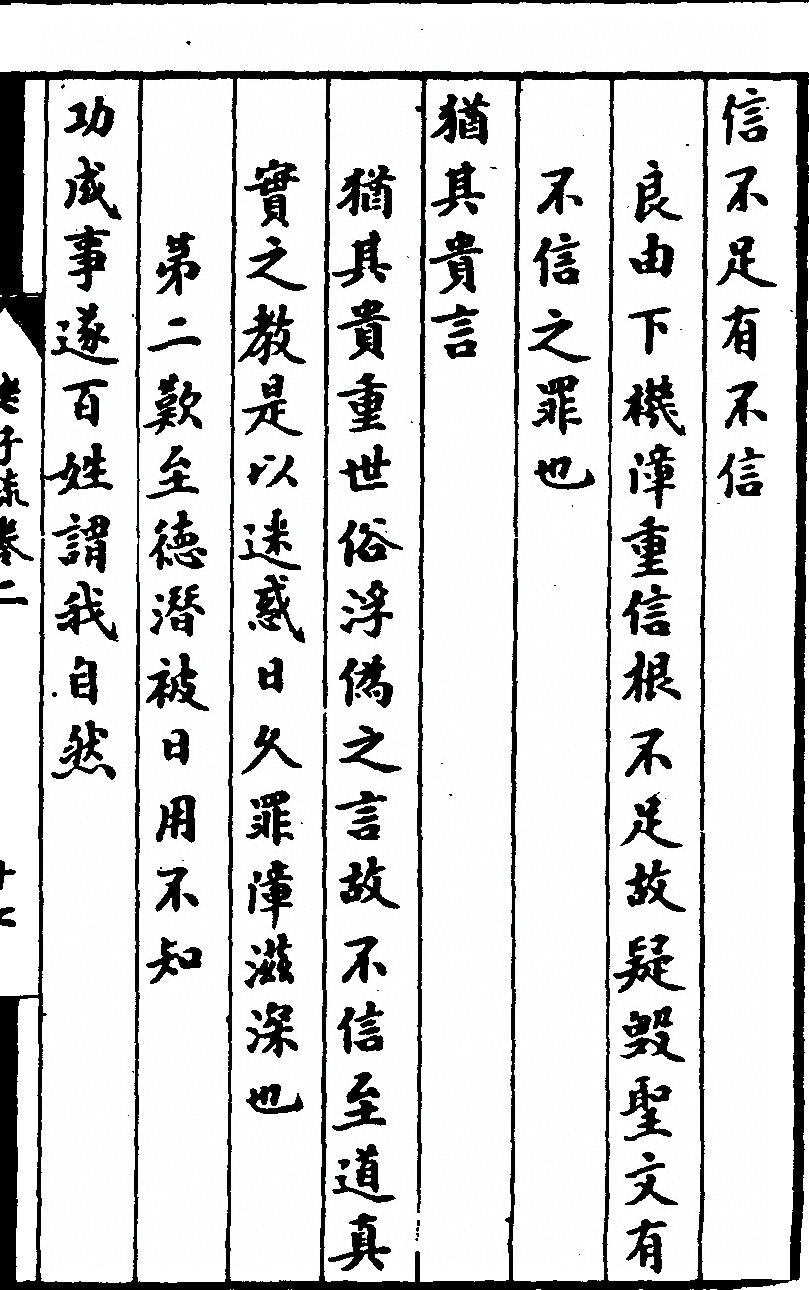 信不足有不信
良由下機障重信根不足故疑毀聖文有
不信之罪也
猶其貴言
猶其貴重世俗浮偽之言故不信至道真
實之教是以迷惑日久罪障滋深也
第二歎至德潛被日用不知
功成事遂百姓謂我自然
老子疏卷二
十七